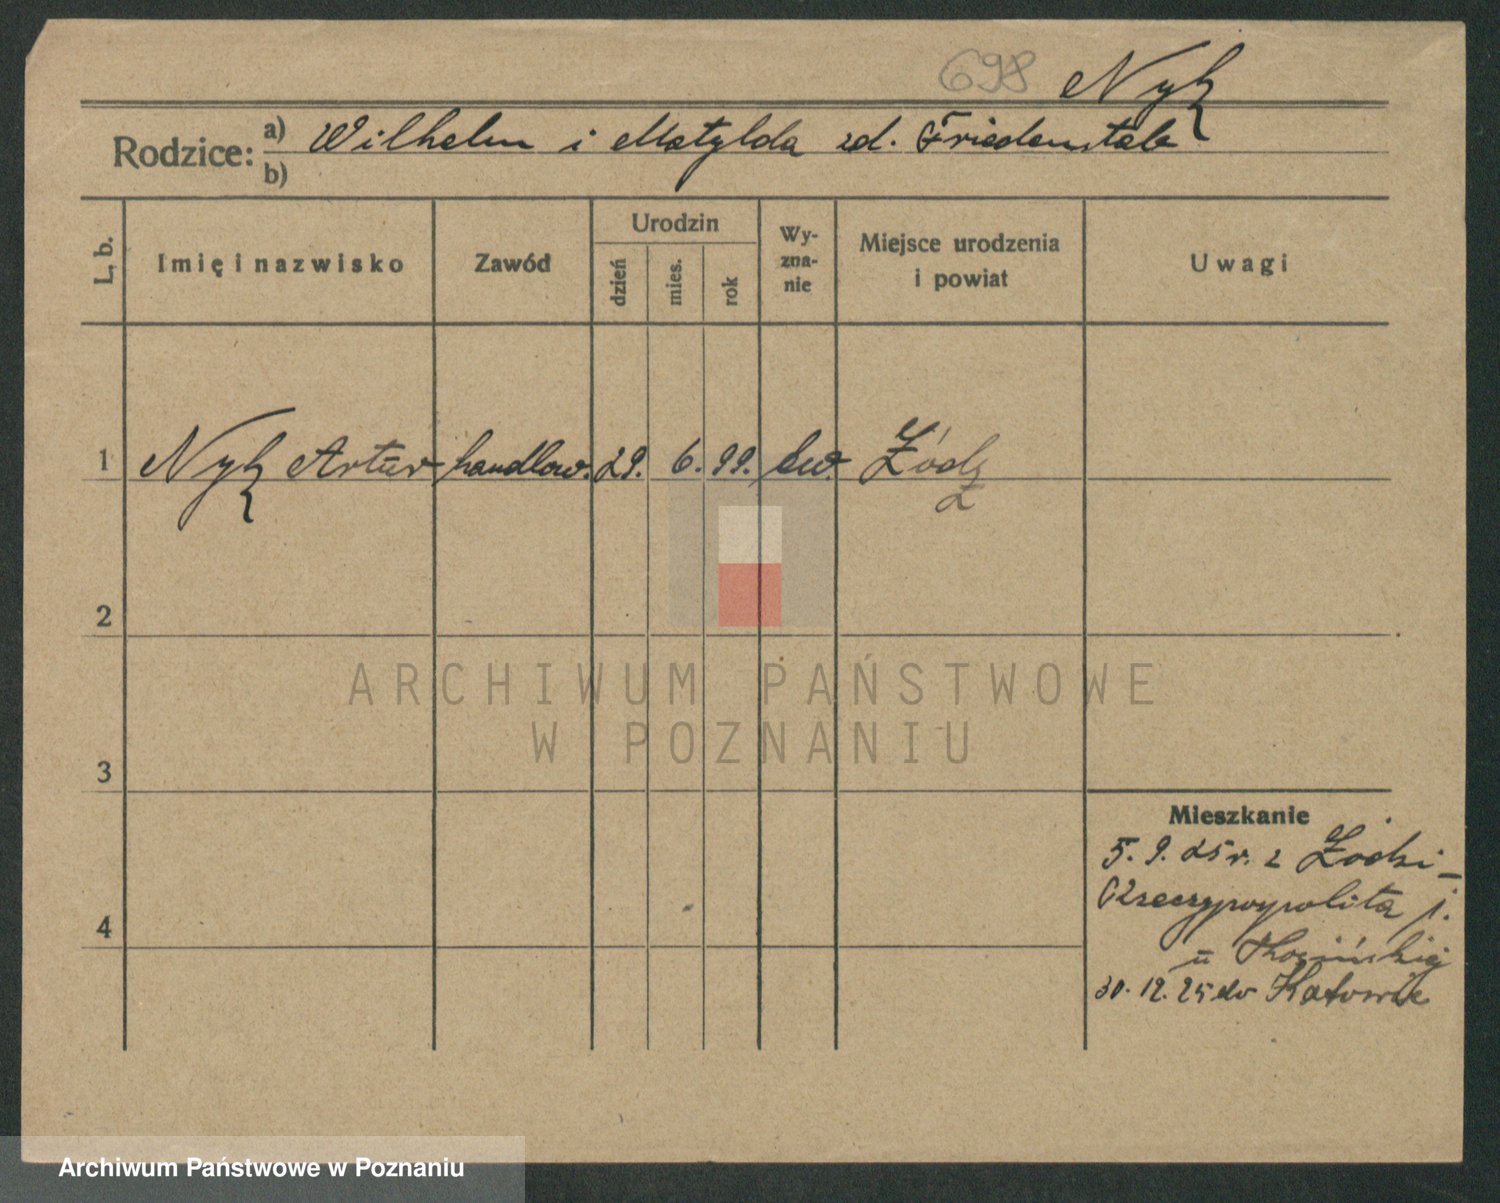 698 Nyk
Rodzice: a) Wilhelm i Matylda zd. Friedenstab
b)
L. b.
Imię i nazwisko
Zawód
Urodzin
dzień
mies.
rok
Wy-
zna-
nie
Miejsce urodzenia
i powiat
Uwagi
1 Nyk Artur handlow. 29. 6. 99. ew. Łódź
2
3
4
Mieszkanie
5. 9. 25 r. z Łodzi -
Rzeczypospolita j.
u
30. 12. 25 do Katowic
ARCHIWUM PAŃSTWOWE
W POZNANIU
Archiwum Państwowe w Poznaniu